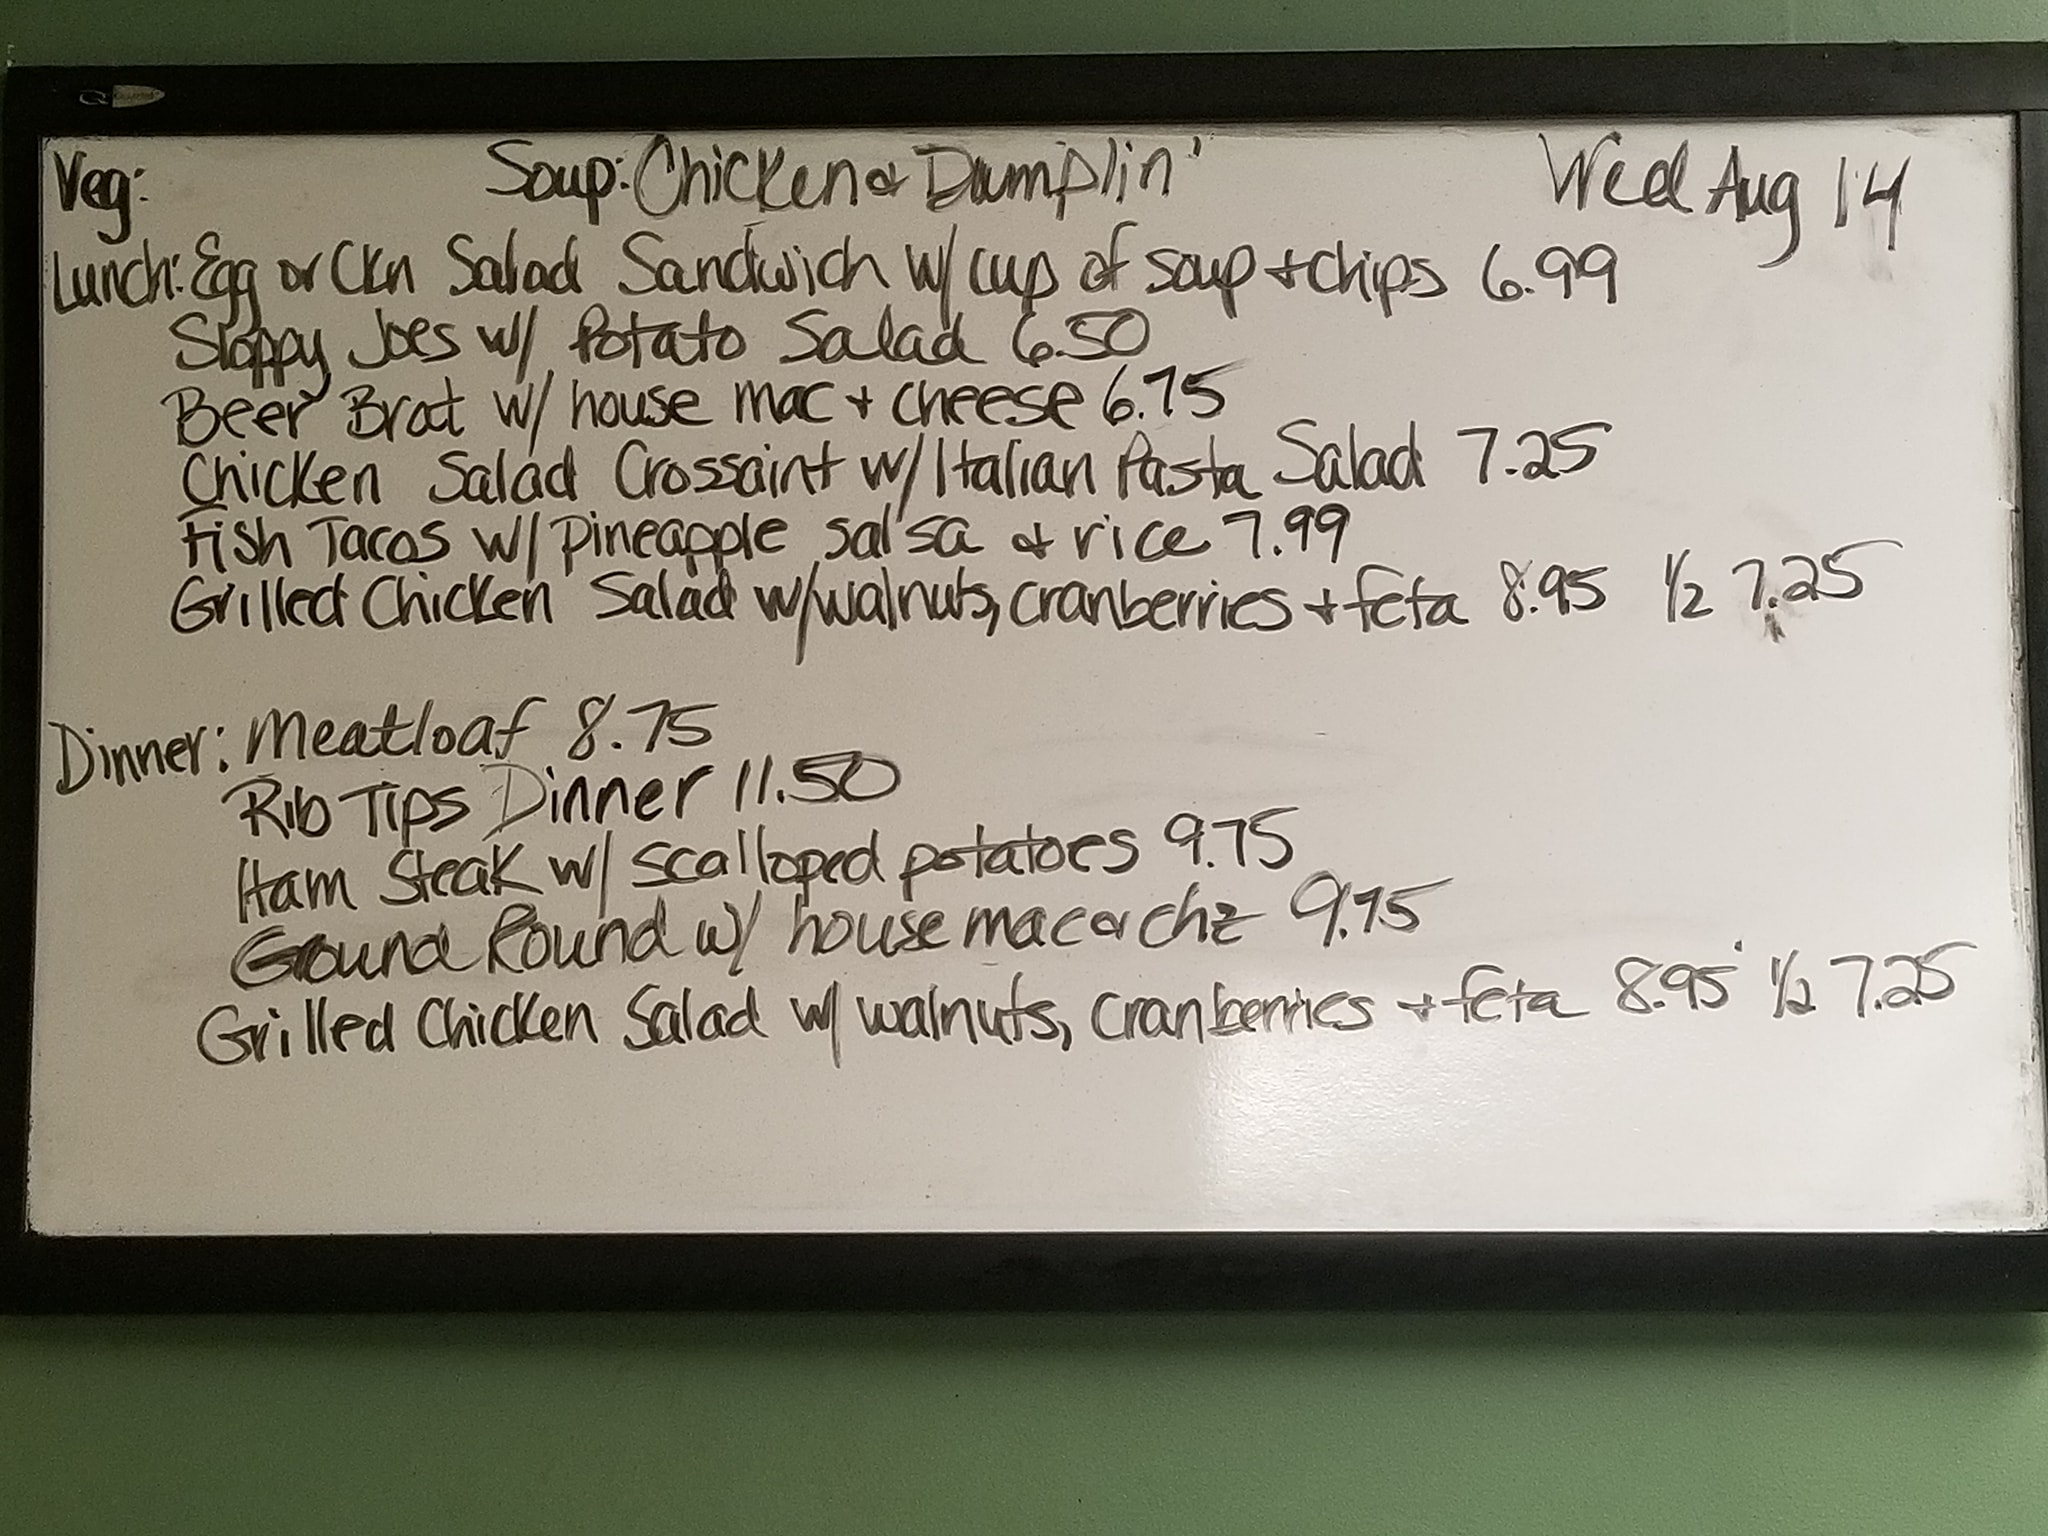 Veg: Soup: Chicken & Dumplin' Wed Aug 14
Lunch: Egg or Ckn Salad Sandwich w/ cup of soup + chips 6.99
Sloppy Joes w/ Potato Salad 6.50
Beer Brat w/ house mac + cheese 6.75
Chicken Salad Crossaint w/ Italian Pasta Salad 7.25
Fish Tacos w/ pineapple salsa & rice 7.99
Grilled Chicken Salad w/ walnuts, cranberries + feta 8.95 1/2 7.25
Dinner: Meatloaf 8.75
Rib Tips Dinner 11.50
Ham Steak w/ scalloped potatoes 9.75
Ground Round w/ house mac & chz 9.75
Grilled Chicken Salad w/ walnuts, cranberries + feta 8.95 1/2 7.25